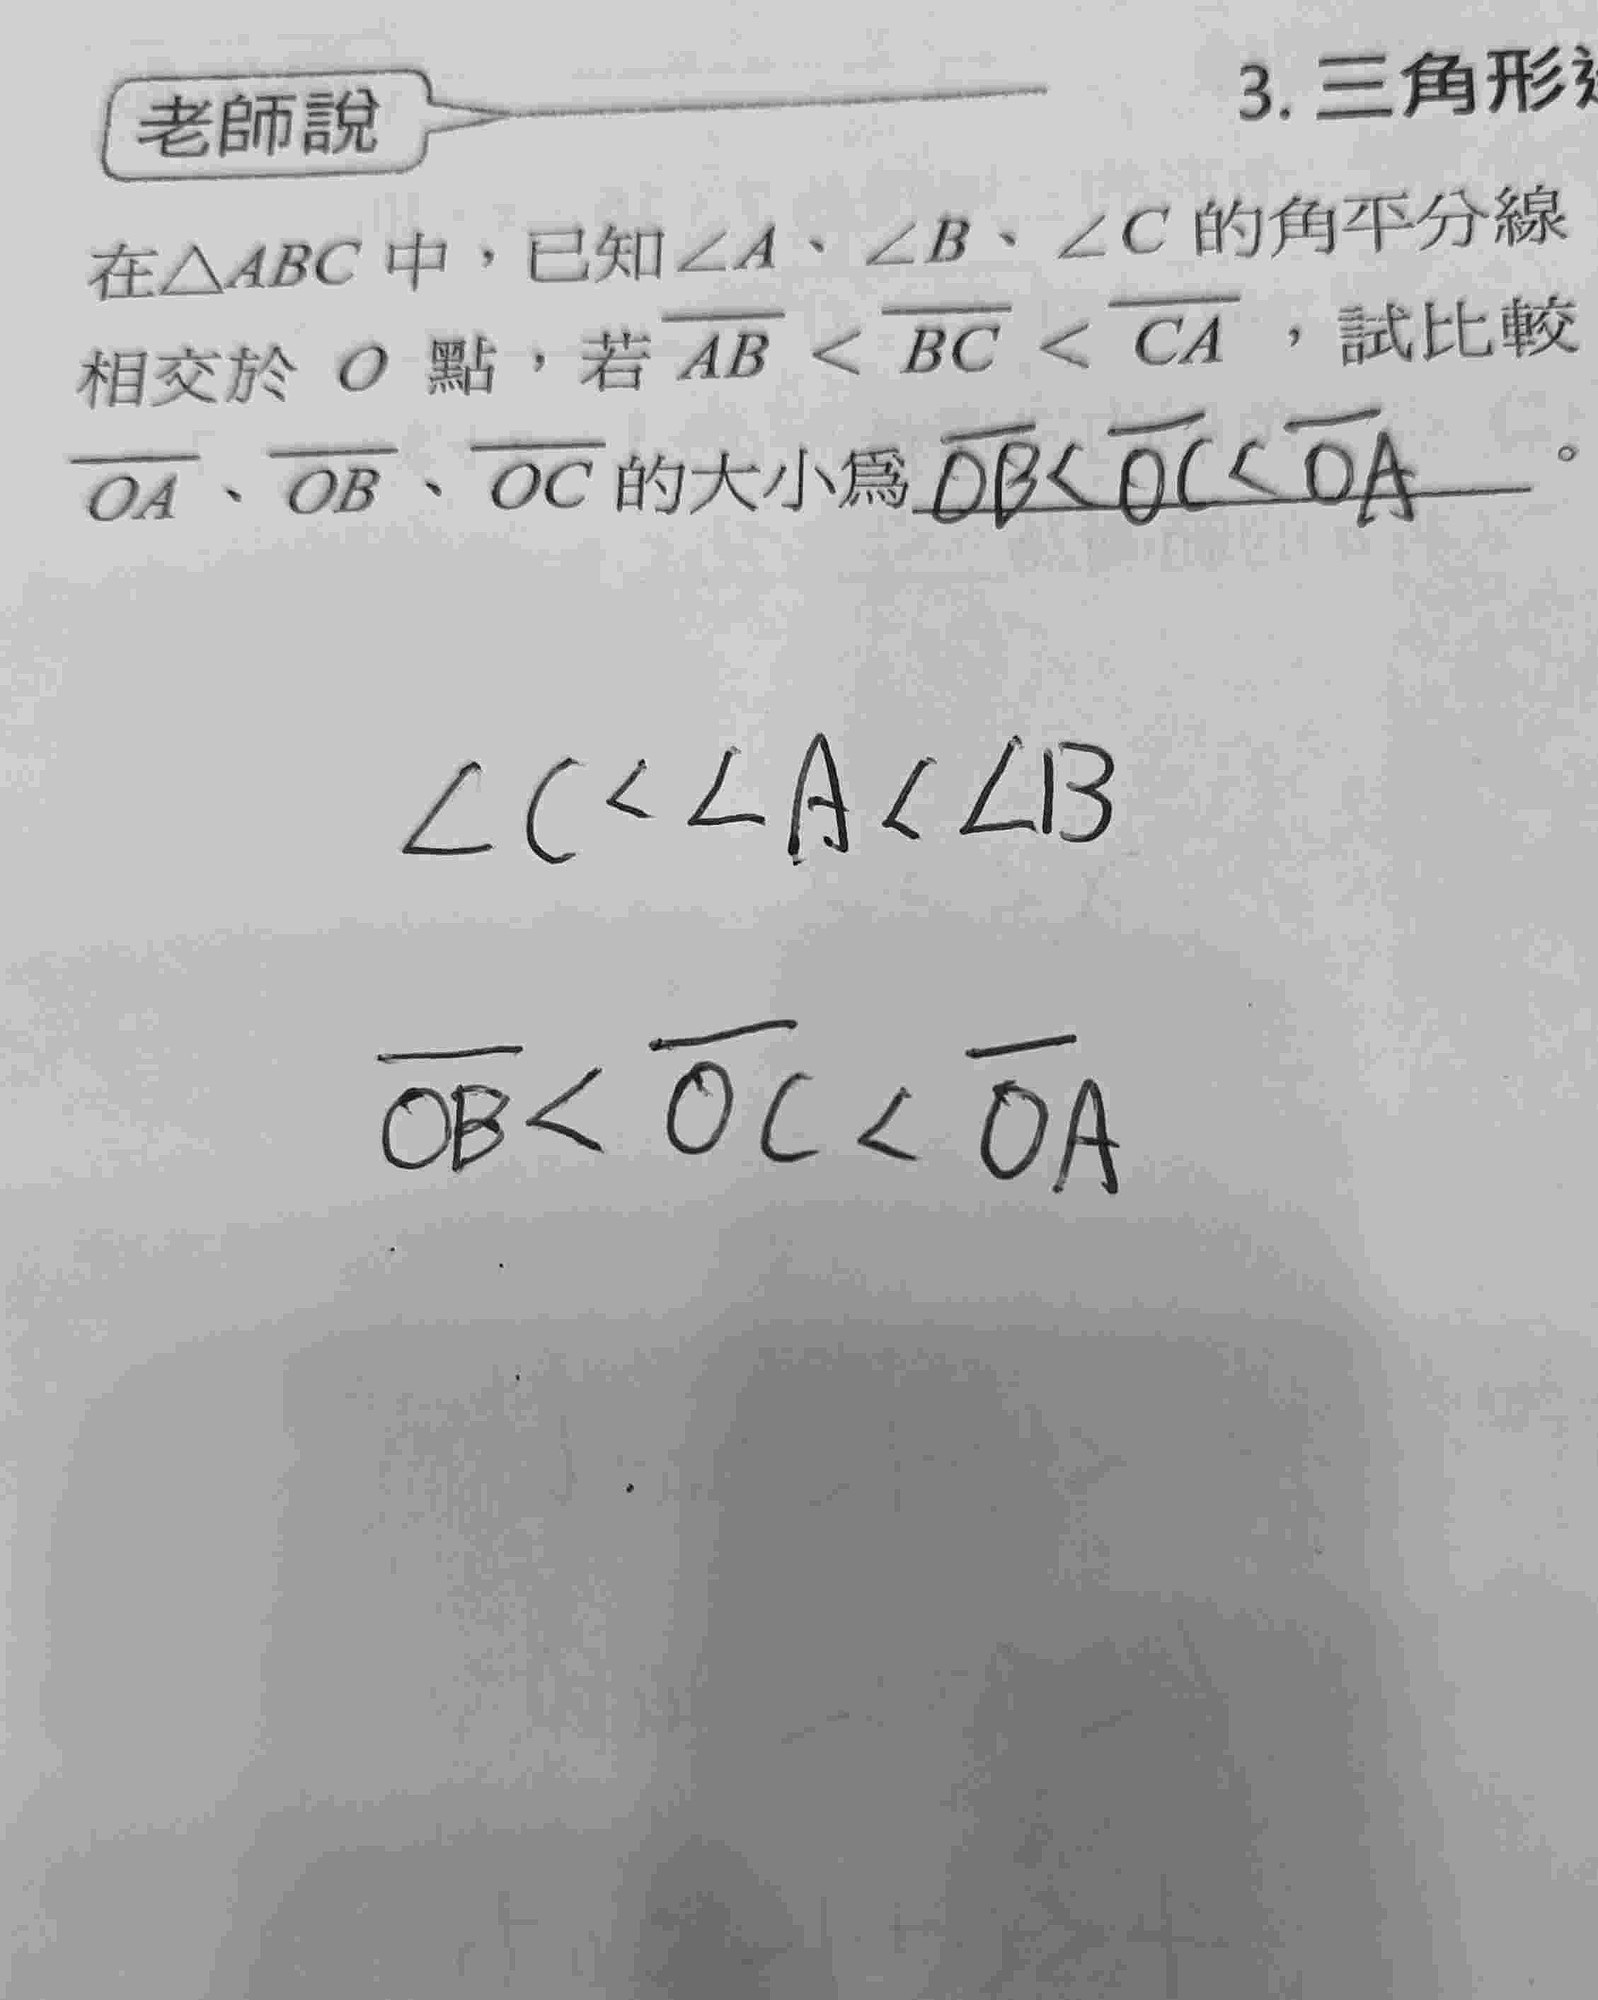 老師說
3. 三角形
在△ABC 中，已知∠A、∠B、∠C 的角平分線
相交於 O 點，若 AB < BC < CA ，試比較
OA、OB、OC 的大小為 OB < OC < OA 。
∠C < ∠A < ∠B
OB < OC < OA